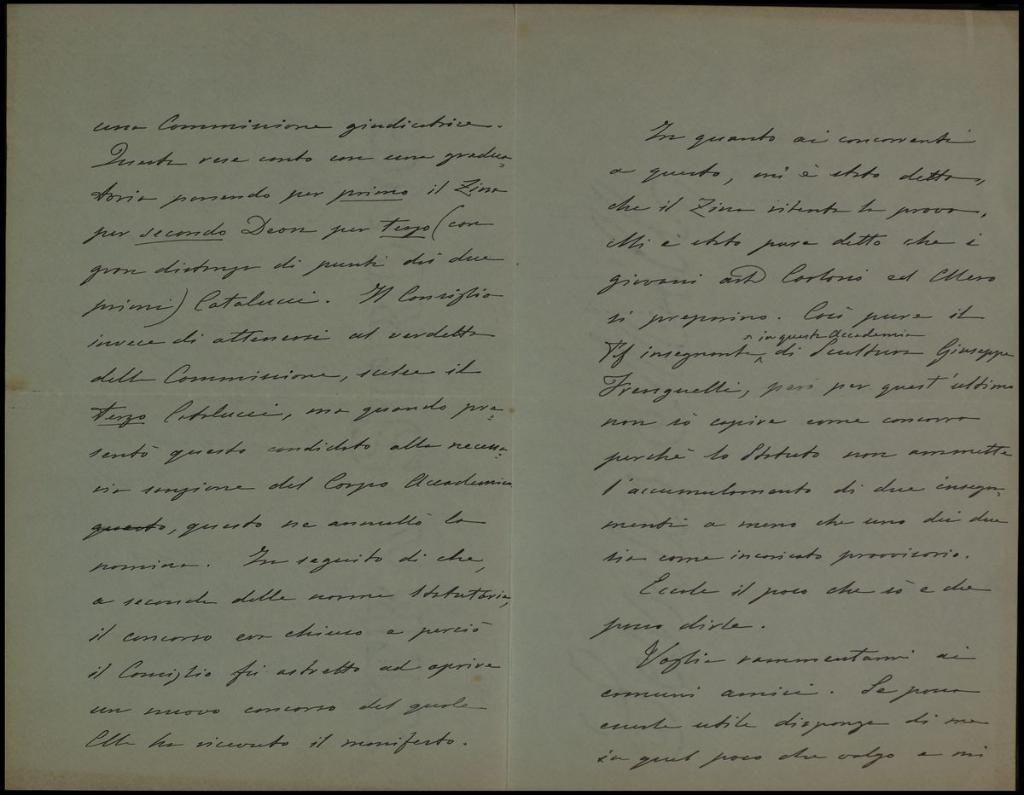 una Commissione giudicatrice.
Questa rese conto con una gradua-
toria ponendo per primo il Zina
per secondo Deon per terzo (con
gran distanza di punti dai due
primi) Catalucci. Il Consiglio
invece di attenersi al verdetto
della Commissione, scelse il
terzo Catalucci, ma quando pre-
sentò questo candidato alla necessa-
ria sanzione del Corpo Accademico
questo, questo ne annullò la
nomina. In seguito di che,
a seconda delle norme Statutarie,
il concorso era chiuso e perciò
il Consiglio fù astretto ad aprire
un nuovo concorso del quale
Ella ha ricevuto il manifesto.
In quanto ai concorrenti
a questo, mi è stato detto,
che il Zina ritenta la prova.
Mi è stato pure detto che i
giovani Cartoni ed Mero
si preparino. Così pure il
in questa Accademia
Pf insegnante di Scultura Giuseppe
Frenguelli, però per quest'ultimo
non sò capire come concorra
perchè lo Statuto non ammette
l'accumulamento di due insegna-
menti a meno che uno dei due
sia come incaricato provvisorio.
Eccole il poco che sò e che
posso dirle.
Voglia rammentarmi ai
comuni amici. Se posso
esserle utile disponga di me
in quel poco che valgo e mi